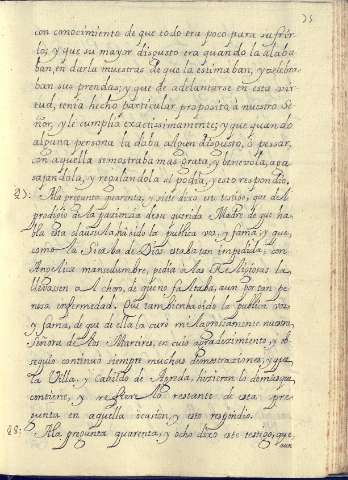 35
con conocimiento de que todo era poco para su fervor
los, y que su mayor disgusto era quando la alaba
ban, en darla muestras de que la estimaban, y zelebra
ban sus prendas; y que de adelantarse en esta vir
tud, tenia hecho particular proposito, â nuestro Se
ñor, y le cumplia exactissimamente; y que quando
alguna persona la daba algun disgusto, ô pessar,
con aquella se mostraba mas grata, y benevola, aga
sajandola, y regalandola si podia, y esto respondio.
47. A la pregunta quarenta, y siete dixo este testigo, que del
prodigio de la pazienzia de su querida Madre de que ha
bla esta clausula ha sido la publica voz, y fama, y que
como la Sierba de Dios estaba tan impedida, con
Angelica mansedumbre, pedia a las Religiosas la
llevassen al Choro, de que no faltaba, aun por tan pe
nosa enfermedad. Que tambien ha sido la publica voz
y fama, de que de ella la curo milagrosamente nuestra
Señora de los Martires, en cuio agradezimiento, y ob
sequio continuò siempre muchas demostraziones, y que
la Villa, y Cabildo de Agreda, hizieron lo demas que
contiene, y refiere lo restante de esta pre
gunta en aquella ocasion, y esto respondio.
48. A la pregunta quarenta, y ocho dixo este testigo, que
aun